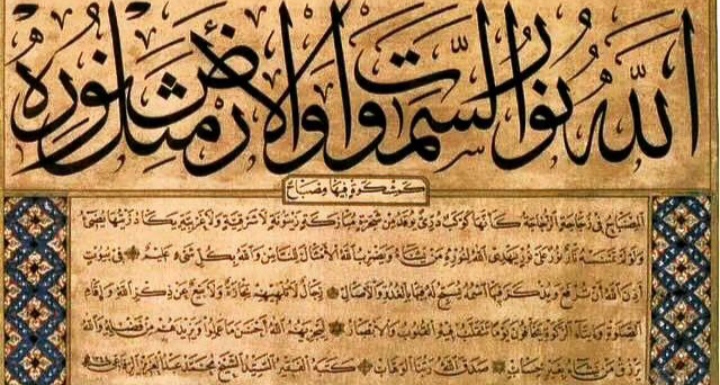 الله نور السموات والأرض مثل نوره
كمشكوة فيها مصباح
المصباح في زجاجة الزجاجة كأنها كوكب دري يوقد من شجرة مباركة زيتونة لا شرقية ولا غربية يكاد زيتها يضيئ
ولو لم تمسسه نار نور على نور يهدي الله لنوره من يشاء ويضرب الله الأمثال للناس والله بكل شيء عليم في بيوت
أذن الله أن ترفع ويذكر فيها اسمه يسبح له فيها بالغدو والآصال رجال لا تلهيهم تجارة ولا بيع عن ذكر الله وإقام
الصلوة وإيتاء الزكوة يخافون يوما تتقلب فيه القلوب والأبصار ليجزيهم الله أحسن ما عملوا ويزيدهم من فضله والله
يرزق من يشاء بغير حساب صدق الله ربنا الوهاب كتبه الفقير السيد الشيخ محمد عبد العزيز الرفاعي